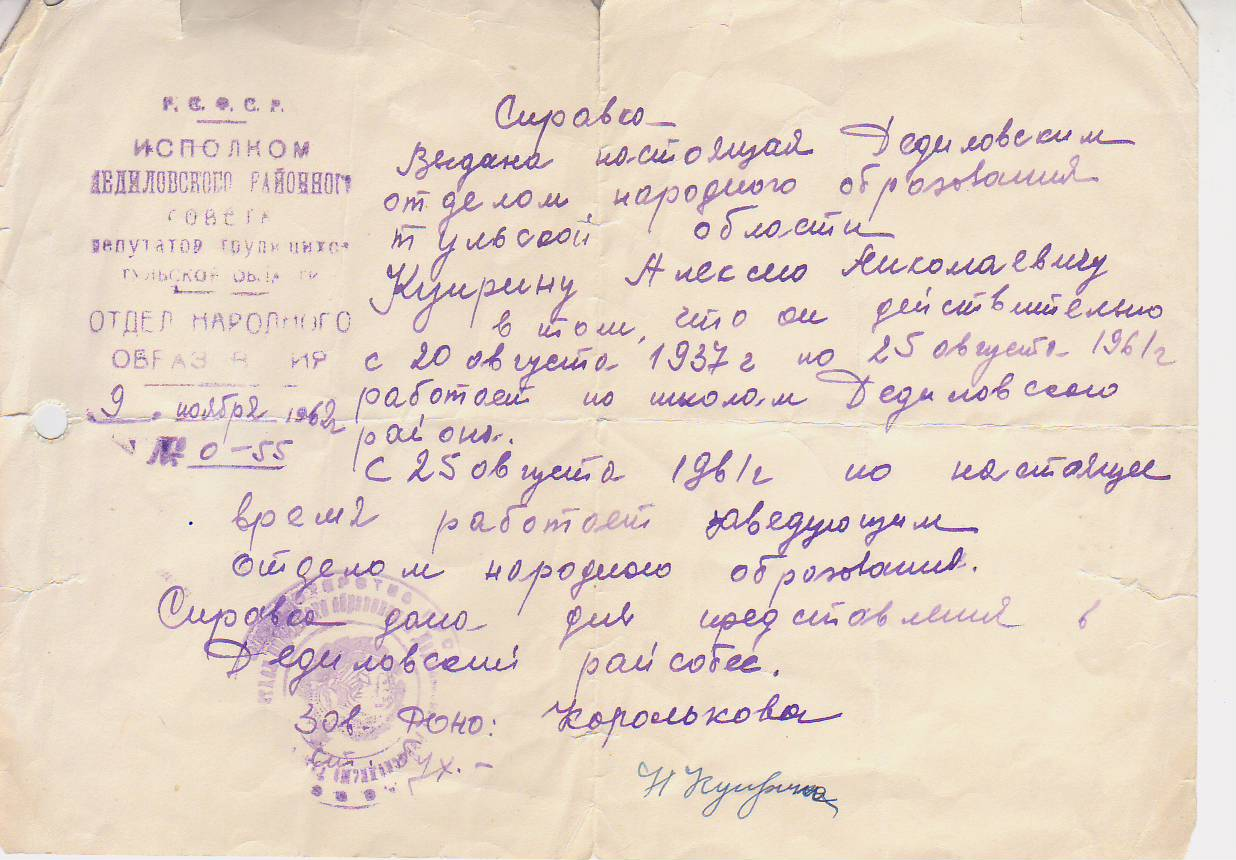 Р. С. Ф. С. Р.
ИСПОЛКОМ
ДЕДИЛОВСКОГО РАЙОННОГО
СОВЕТА
депутатов трудящихся
ТУЛЬСКОЙ ОБЛАСТИ
ОТДЕЛ НАРОДНОГО
ОБРАЗ В НИЯ
9 ноября 1962г
№ 0-55
Справка
Выдана настоящая Дедиловским
отделом народного образования
тульской области
Куприну Алексею Николаевичу
в том, что он действительно
с 20 августа 1937 г по 25 августа 1961г
работает по школам Дедиловского
района.
С 25 августа 1961г по настоящее
время работает заведующим
отделом народного образования.
Справка дана для представления в
Дедиловский райсобес.
Зав. Роно: Королькова
Н Куприна